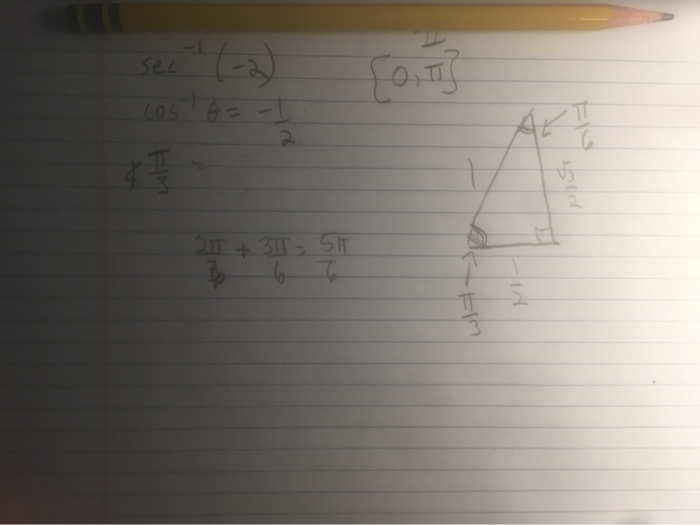 sec⁻¹(-2)
[0, π]
π
cos⁻¹ θ = -1/2
π/3 =
2π/6 + 3π/6 = 5π/6
π/6
1
√3/2
1/2
π/3